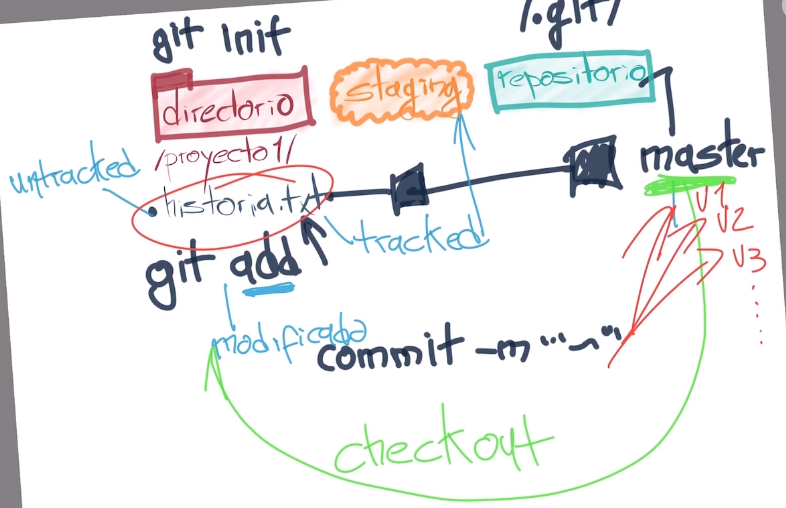 git init
/.git/
directorio
staging
repositorio
/proyecto1/
untracked
historia.txt
master
tracked
V1
V2
V3
git add
modificado
commit -m "~"
checkout